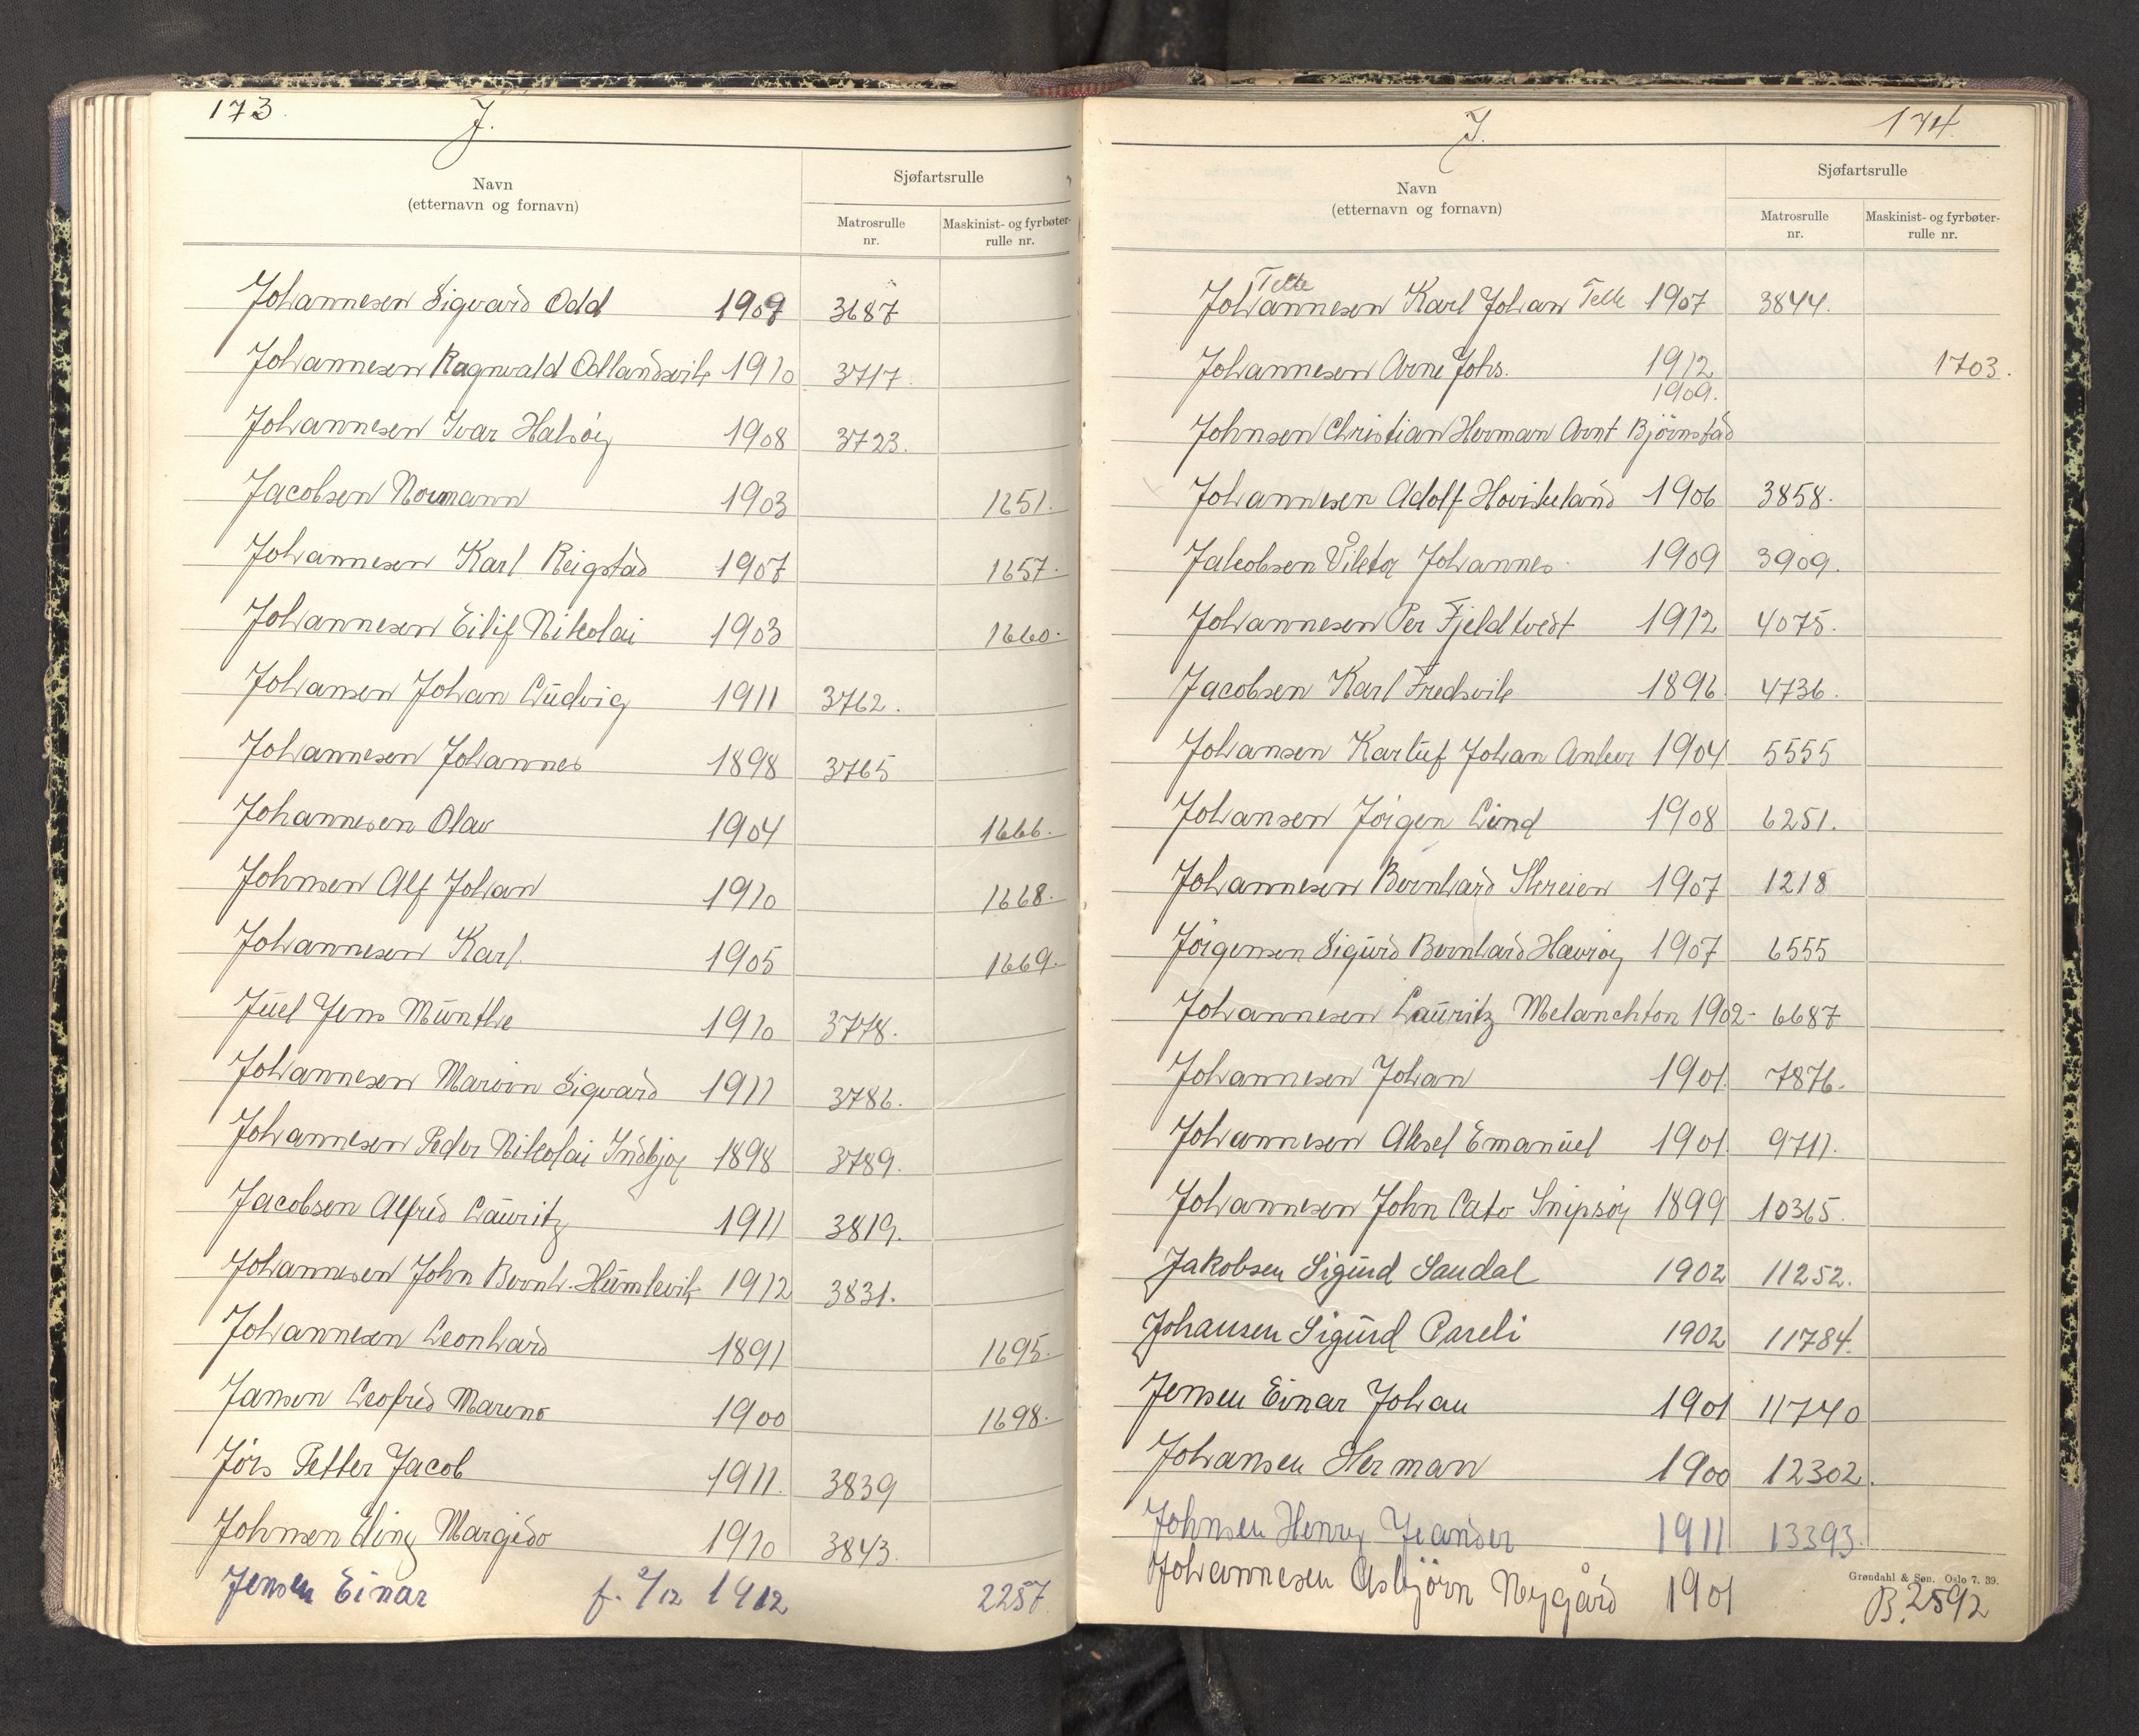 173.
J.
Navn
(etternavn og fornavn)
Sjøfartsrulle
Matrosrulle
nr.
Maskinist- og fyrbøter-
rulle nr.
Johannesen Sigvard Odd 1907 3687
Johannesen Ragnvald Odlandsvik 1910 3717.
Johannesen Ivar Halsöy 1908 3723.
Jacobsen Normann 1903 1651.
Johannesen Karl Reigstad 1907 1657.
Johannesen Eilif Nikolai 1903 1660.
Johansen Johan Ludvig 1911 3762.
Johannesen Johannes 1898 3765
Johannesen Olav 1904 1666.
Johnsen Alf Johan 1910 1668.
Johannesen Karl. 1905 1669.
Juel Jens Munthe 1910 3778.
Johannesen Marvin Sigvard 1911 3786.
Johannesen Peder Nikolai Indbjoy 1898 3789.
Jacobsen Alfred Lauritz 1911 3819.
Johannesen John Bernh. Humlevik 1912 3831.
Johannesen Leonhard 1891 1695.
Jansen Leofred Mareno 1900 1698.
Jörs Petter Jacob 1911. 3839
Johnsen Eling Margido 1910 3843.
Jensen Einar f. 2/12 1912 2257
J.
174.
Navn
(etternavn og fornavn)
Sjøfartsrulle
Matrosrulle
nr.
Maskinist- og fyrbøter-
rulle nr.
Telle
Johannesen Karl Johan Telle 1907 3844.
Johannesen Arne Johs. 1912 1703.
1909.
Johnsen Christian Herman Arnt Björnstad
Johannesen Adolf Hoviskeland 1906 3858.
Jakobsen Viktor Johannes 1909 3909.
Johannesen Per Fjeldtvedt 1912 4075.
Jacobsen Karl Fredsvik 1896. 4736.
Johansen Karluf Johan Anker 1904 5555
Johansen Jörgen Lind 1908 6251.
Johannesen Bernhard Skreien 1907 1218
Jörgensen Sigurd Bernhard Havröy 1907 6555
Johannesen Lauritz Melanchton 1902- 6687
Johannesen Johan 1901. 7876.
Johannesen Aksel Emanuel 1901. 9711.
Johannesen John Cato Snipsöy 1899 10365.
Jakobsen Sigurd Sandal 1902 11252.
Johansen Sigurd Pareli 1902 11784.
Jensen Einar Johan 1901 11740
Johansen Herman 1900 12302.
Johnsen Henry Jeander 1911 13393.
Grøndahl & Søn. Oslo 7. 39.
Johannesen Asbjörn Nygård 1901 B.2592